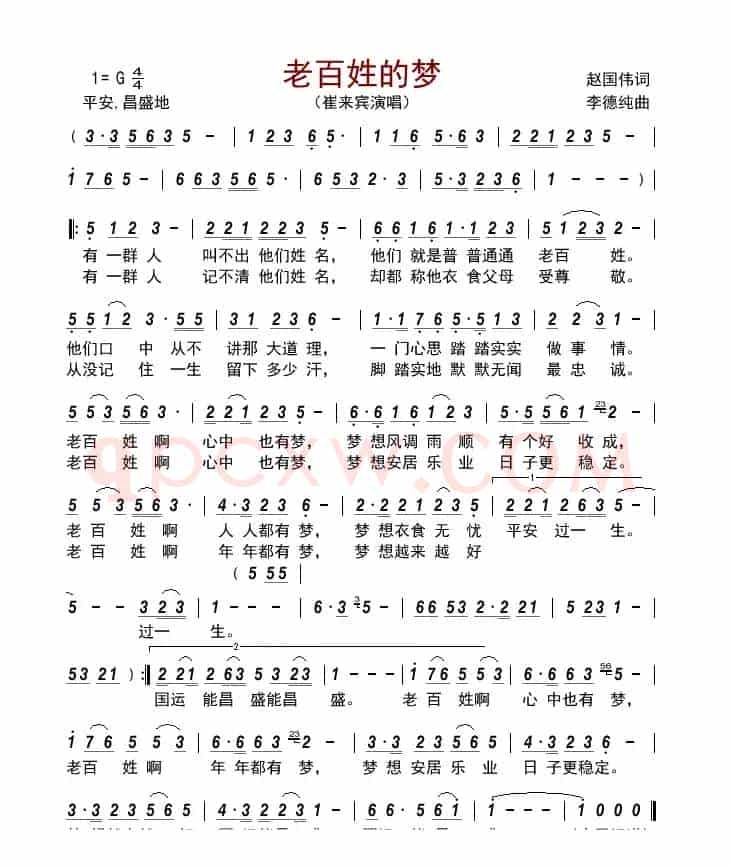 老百姓的梦
1= G 4/4
赵国伟词
平安,昌盛地
（崔来宾演唱）
李德纯曲
( 3·3 5 6 3 5 - | 1 2 3 6 5 · | 1 1 6 5·6 3 | 2 2 1 2 3 5 -
1 7 6 5 - | 6 6 3 5 6 5 · | 6 5 3 2·3 | 5·3 2 3 6 | 1 - - )
‖: 5 1 2 3 - | 2 2 1 2 2 3 5 - | 6 6 1 6 1·1 2 3 | 5 1 2 3 2 - |
有 一群 人 叫不出 他们姓 名， 他们 就是 普 普通通 老百 姓。
有 一群 人 记不清 他们姓 名， 却都 称他衣 食父母 受尊 敬。
5 5 1 2 3 · 5 5 | 3 1 2 3 6 · | 1·1 7 6 5·5 1 3 | 2 2 3 1 -
他们口 中 从不 讲那 大道 理， 一 门心思 踏 踏实实 做事 情。
从没记 住 一生 留下 多少 汗， 脚 踏实地 默 默无闻 最忠 诚。
5 5 3 5 6 3 · | 2 2 1 2 3 5 - | 6·6 6 1 1 2 3 | 5·5 5 6 1 23 2 -
老百 姓啊 心中 也有梦， 梦 想风调 雨 顺 有 个好 收成，
老百 姓啊 心中 也有梦， 梦 想安居 乐 业 日 子更 稳定。
qpcxw.com
5 5 3 5 6 3 · | 4·3 2 3 6 - | 2·2 2 1 2 3 5 | 2 2 1 2 3 5
1
老 百 姓 啊 人 人都有 梦， 梦 想衣食 无 忧 平安 过一 生。
老 百 姓 啊 年 年都有 梦， 梦 想越来 越 好
( 5 5 5
5 - - 3 2 3 | 1 - - | 6·3 3 5 - | 6 6 5 3 2·2 2 1 | 5 - - -
过一 生。
2
5 3 2 1 ) :‖ 2 2 1 2 6 3 5 3 2 3 | 1 - - - | 1 7 6 5 5 3 | 6·6 6 3 56 5 -
国运 能昌 盛能昌 盛。 老 百 姓啊 心 中也有 梦，
1 7 6 5 5 · | 6·6 6 3 23 2 - | 3·3 2 3 5 6 5 | 4·3 2 3 6 -
老百 姓啊 年 年都有 梦， 梦 想 安居 乐 业 日 子更稳定。
3·3 2 3 5 6 5 | 2·2 2 3 1 · | 6·6 5 6 1 | 1 - - - | 1 0 0 0 ‖